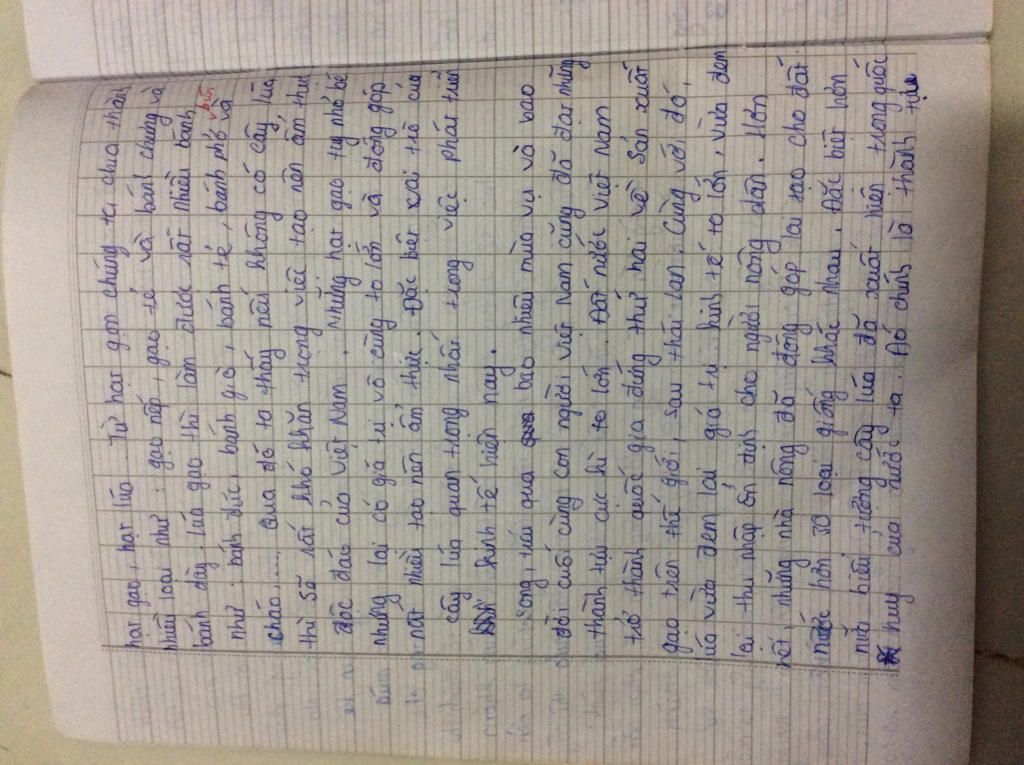 hạt gạo, hạt lúa. Từ hạt gạo chúng ta chia thành
nhiều loại như: gạo nếp, gạo tẻ và bánh chưng và
bánh dầy. Lúa gạo thì làm được rất nhiều bánh
như: bánh đúc, bánh giò, bánh tẻ, bánh phở và bún
cháo.... Qua đó ta thấy nếu không có cây lúa
thì sẽ rất khó khăn trong việc tạo nền ẩm thực
độc đáo của Việt Nam. Những hạt gạo tuy nhỏ bé
nhưng lại có giá trị vô cùng to lớn và đóng góp
rất nhiều tạo nên ẩm thực. Đặc biệt vai trò của
cây lúa quan trọng nhất trong việc phát triển
kinh tế hiện nay.
Song, trải qua bao nhiêu mùa vụ và bao
đời cuối cùng con người Việt Nam cũng đã đạt những
thành tựu cực kì to lớn. Đất nước Việt Nam
trở thành quốc gia đứng thứ hai về sản xuất
gạo trên thế giới, sau Thái Lan. Cùng với đó,
lúa vừa đem lại giá trị kinh tế to lớn, vừa đem
lại thu nhập ổn định cho người nông dân. Hơn
hết, những nhà nông đã đóng góp lai tạo cho đất
nước hơn 30 loại giống khác nhau. Đặc biệt hơn
nữa biểu tượng cây lúa đã xuất hiện trong quốc
huy của nước ta. Đó chính là thành tựu